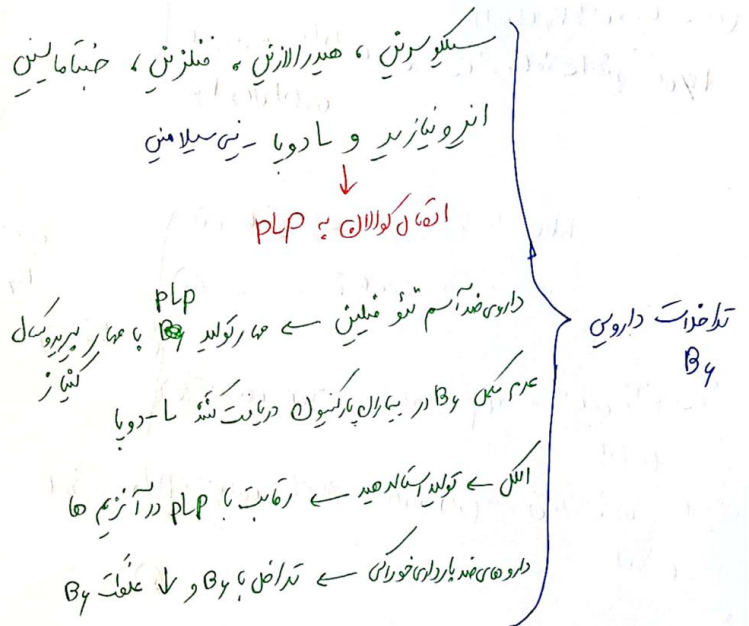 سیکلوسرین ، هیدرالازین ، فنلزین ، ضبتامایسین
ایزونیازید و L دوپا - پنی سیلامین
↓
اتصال کووالان به PLP
داروی ضد آسم تئوفیلین ← مهار تولید PLP با مهار پیریدوکسال کیناز
عدم مکمل B6 در بیماران پارکینسون دریافت کننده L-دوپا
الکل ← تولید استالدهید ← رقابت با PLP در آنزیم ها
داروهای ضد بارداری خوراکی ← تداخل با B6 و ↓ غلظت B6
تداخلات دارویی
B6